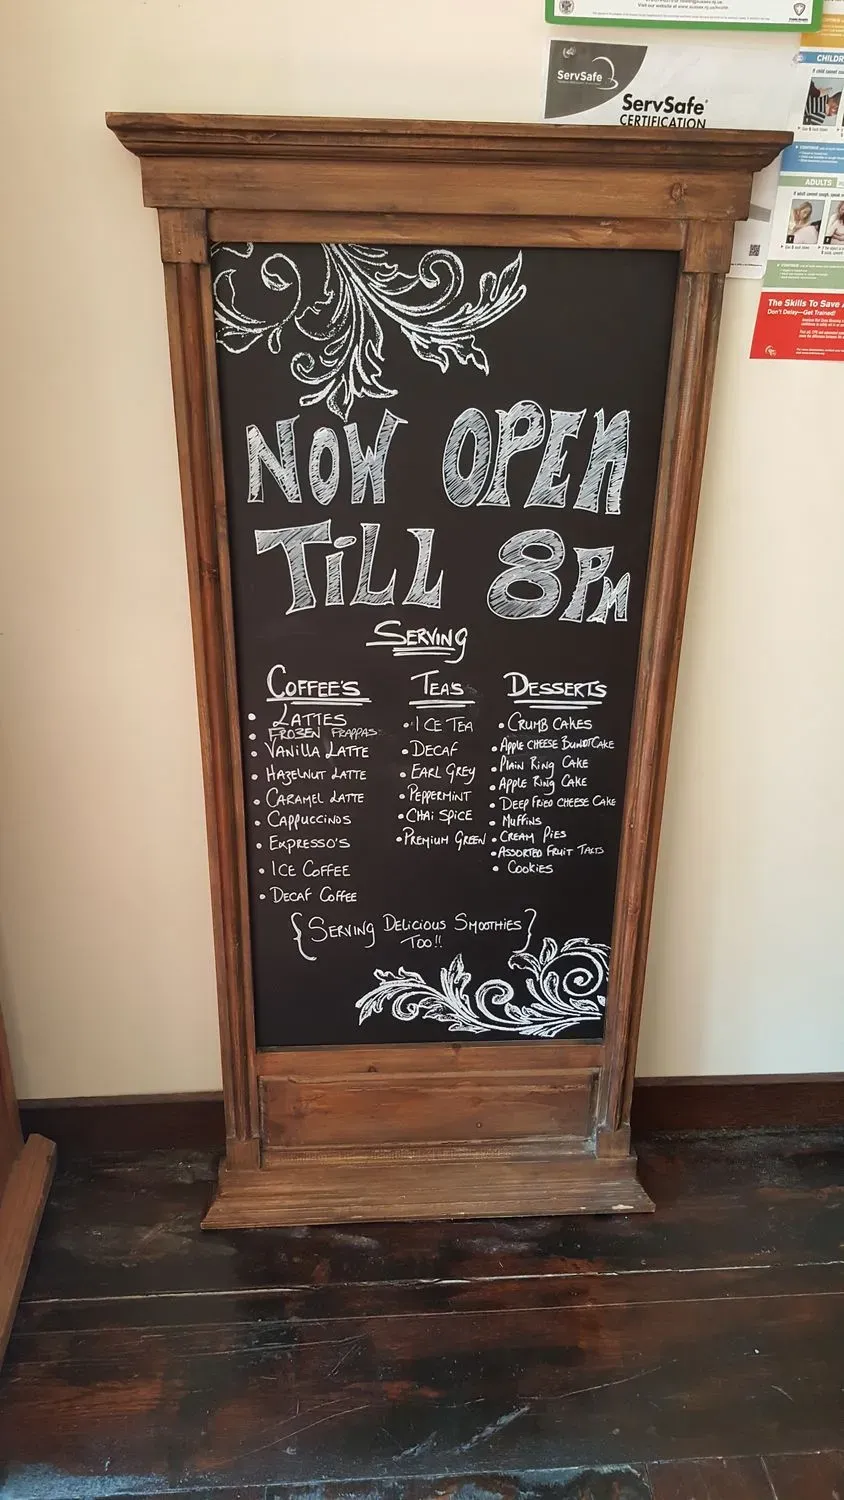 Visit our website at www.sussex.nj.us/health
ServSafe
ServSafe®
CERTIFICATION
CHILDR
ADULTS
The Skills To Save
Don't Delay—Get Trained!
NOW OPEN
TiLL 8PM
SERVING
COFFEE'S
• LATTES
• FROZEN FRAPPAS
• VANiLLA LATTE
• HAZELNUT LATTE
• CARAMEL LATTE
• CAPPUCCINOS
• EXPRESSO'S
• ICE COFFEE
• DECAF COFFEE
TEA'S
• ICE TEA
• DECAF
• EARL GREY
• PEPPERMINT
• CHAi SPICE
• PREMIUM GREEN
DESSERTS
• CRUMB CAKES
• APPLE CHEESE BUNDT CAKE
• PLAIN RING CAKE
• APPLE RING CAKE
• DEEP FRIED CHEESE CAKE
• MUFFINS
• CREAM PIES
• ASSORTED FRUIT TARTS
• COOKIES
{SERVING DELICIOUS SMOOTHIES
TOO!!}